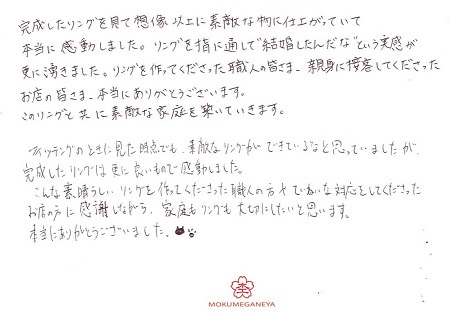 完成したリングを見て想像以上に素敵な物に仕上がっていて
本当に感動しました。リングを指に通して"結婚したんだな"という実感が
更に湧きました。リングを作ってくださった職人の皆さま、親身に接客してくださった
お店の皆さま、本当にありがとうございます。
このリングと共に素敵な家庭を築いていきます。
フィッティングのときに見た時点でも、素敵なリングができているなと思っていましたが、
完成したリングは更に良いもので感動しました。
こんな素晴らしいリングを作ってくださった職人の方々、ていねいな対応をしてくださった
お店の方に感謝しながら、家庭もリングも大切にしたいと思います。
本当にありがとうございました。
MOKUMEGANEYA